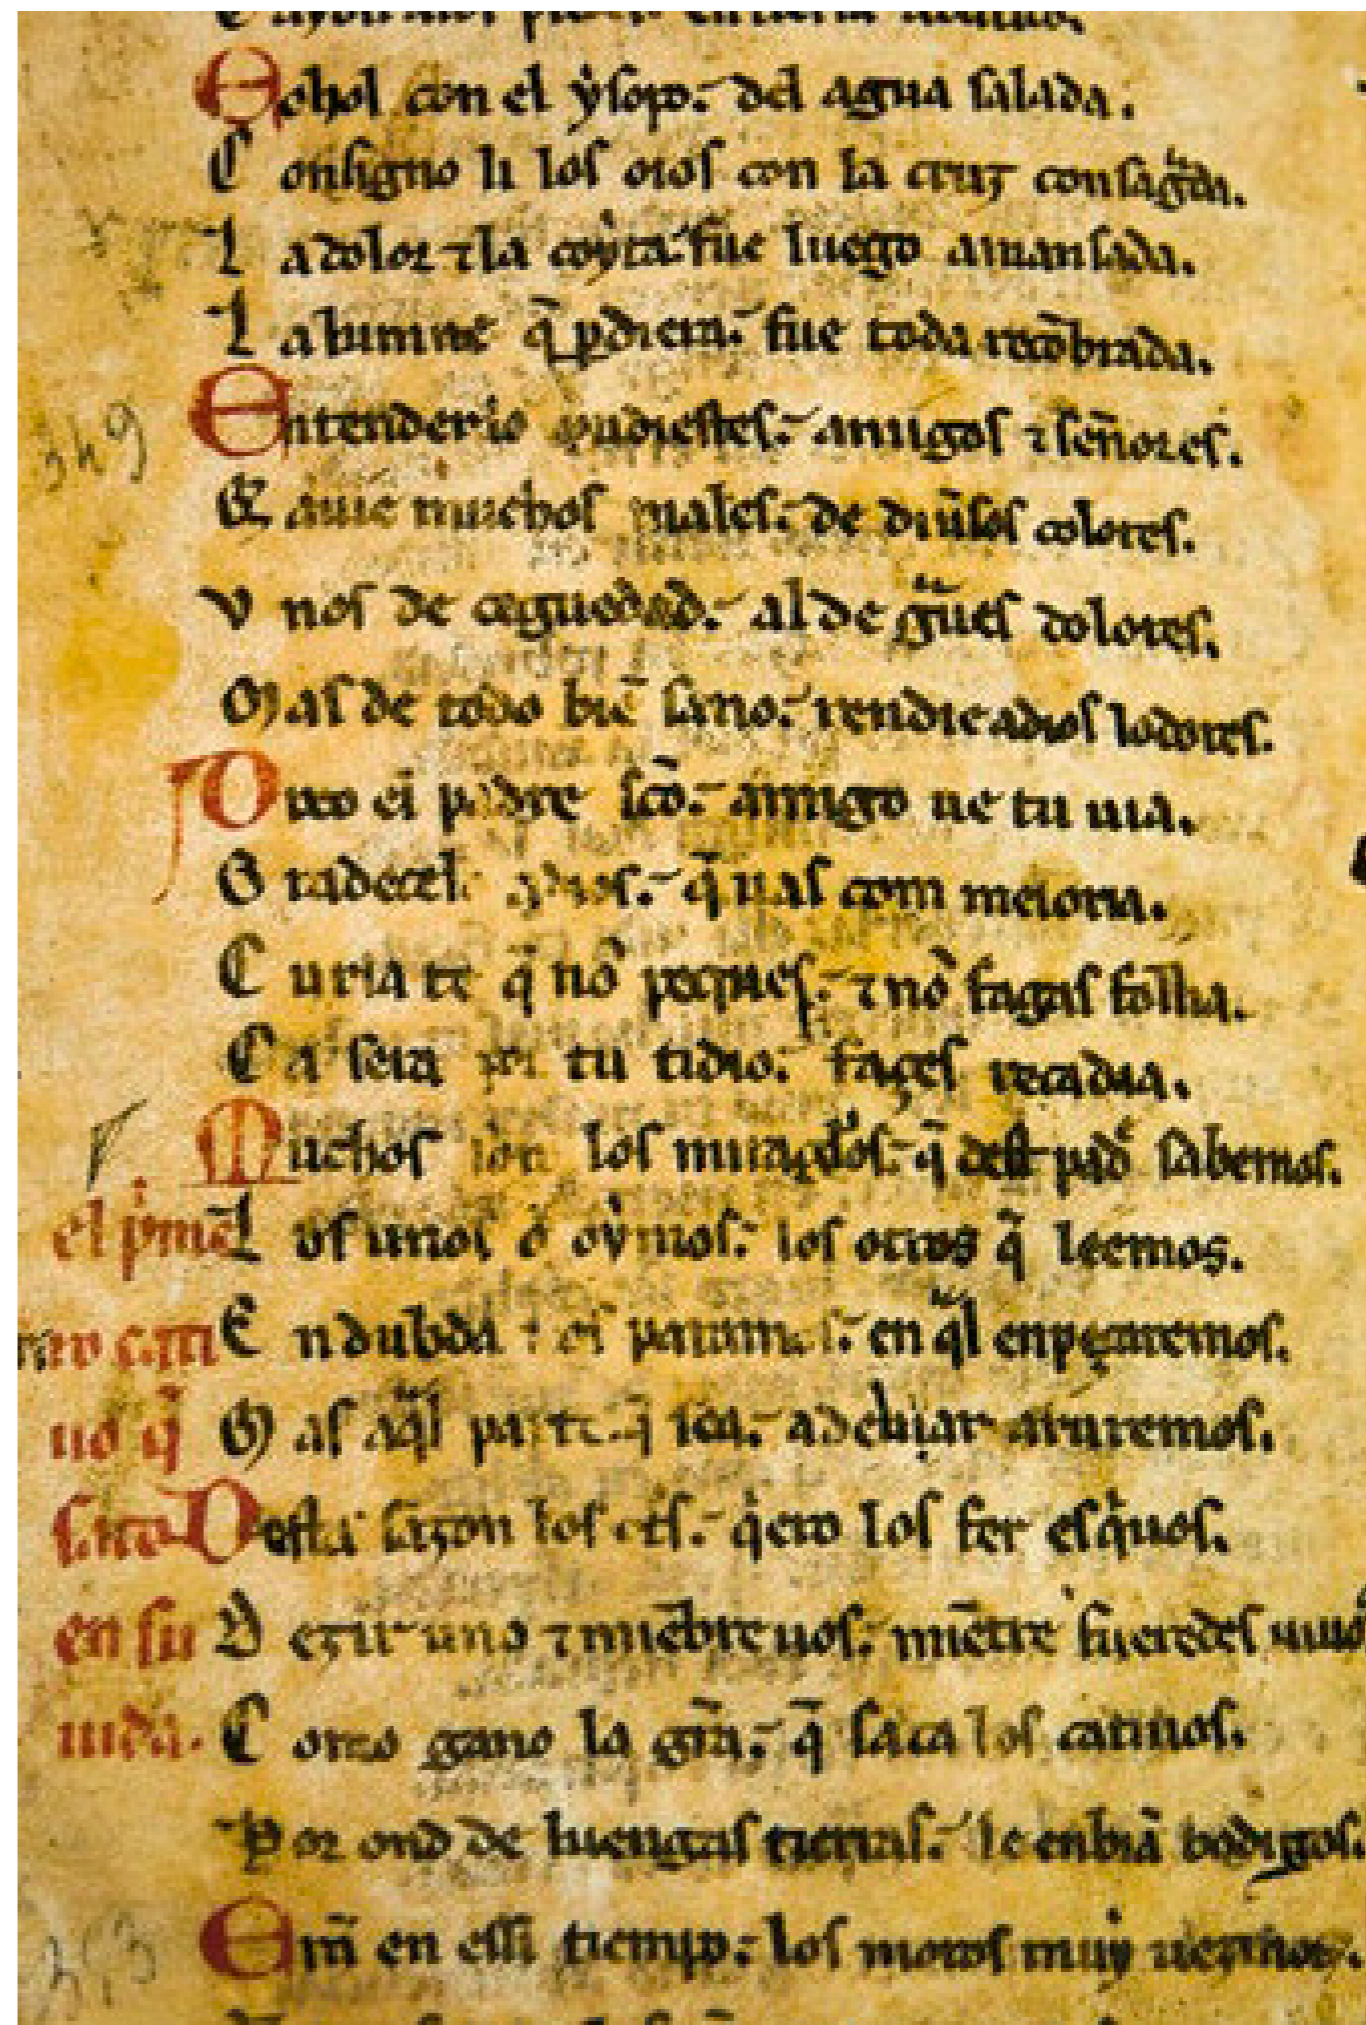 Echol con el ysopo. del agua salada.
Consigno li los oios con la cruz consagrada.
La dolor ⁊ la coyta fue luego amansada.
La lumne q̄ pdiera. fue toda recōbrada.
349
Entenderlo pudiestes. amigos ⁊ señores.
Q̄ auie muchos males. de diuͥsos colores.
Vnos de ceguedad. al de gͣues dolores.
Mas de todo biē sano. rendie a dios loores.
Dixo el padre sc̄o. amigo ue tu uia.
Gradecel a dios. q̄ uas com meioria.
Curia te q̄ nō peques. ⁊ nō fagas follia.
Ca sera por tu tidio. si faces recadia.
Muchos son los miraglos. q̄ dest padͤ sabemos.
el pͥme
Los unos ō oymos. los otros q̄ leemos.
En dubda nos paramos. en qͣl enpeçaremos.
uo q̄
Mas a qͣl part q̄ sea. adebiar auremos.
saco
Desta sazon los otros. qͥero los fer esqͥuos.
en su
Dezir uno ⁊ miēbreuos. miētre fueredes uiuos
uida.
Como gano la grā. q̄ saca los catiuos.
Por ond de luengas tierras. le enbiā bodigos.
353
Erā en essi tiempo. los moros muy uezinos.